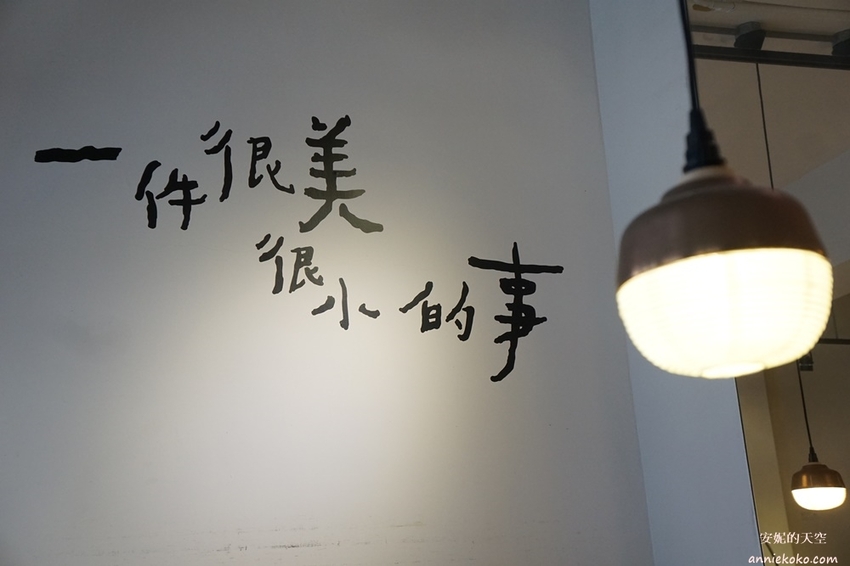 一件很美
很小的事
安妮的天空
anniekoko.com